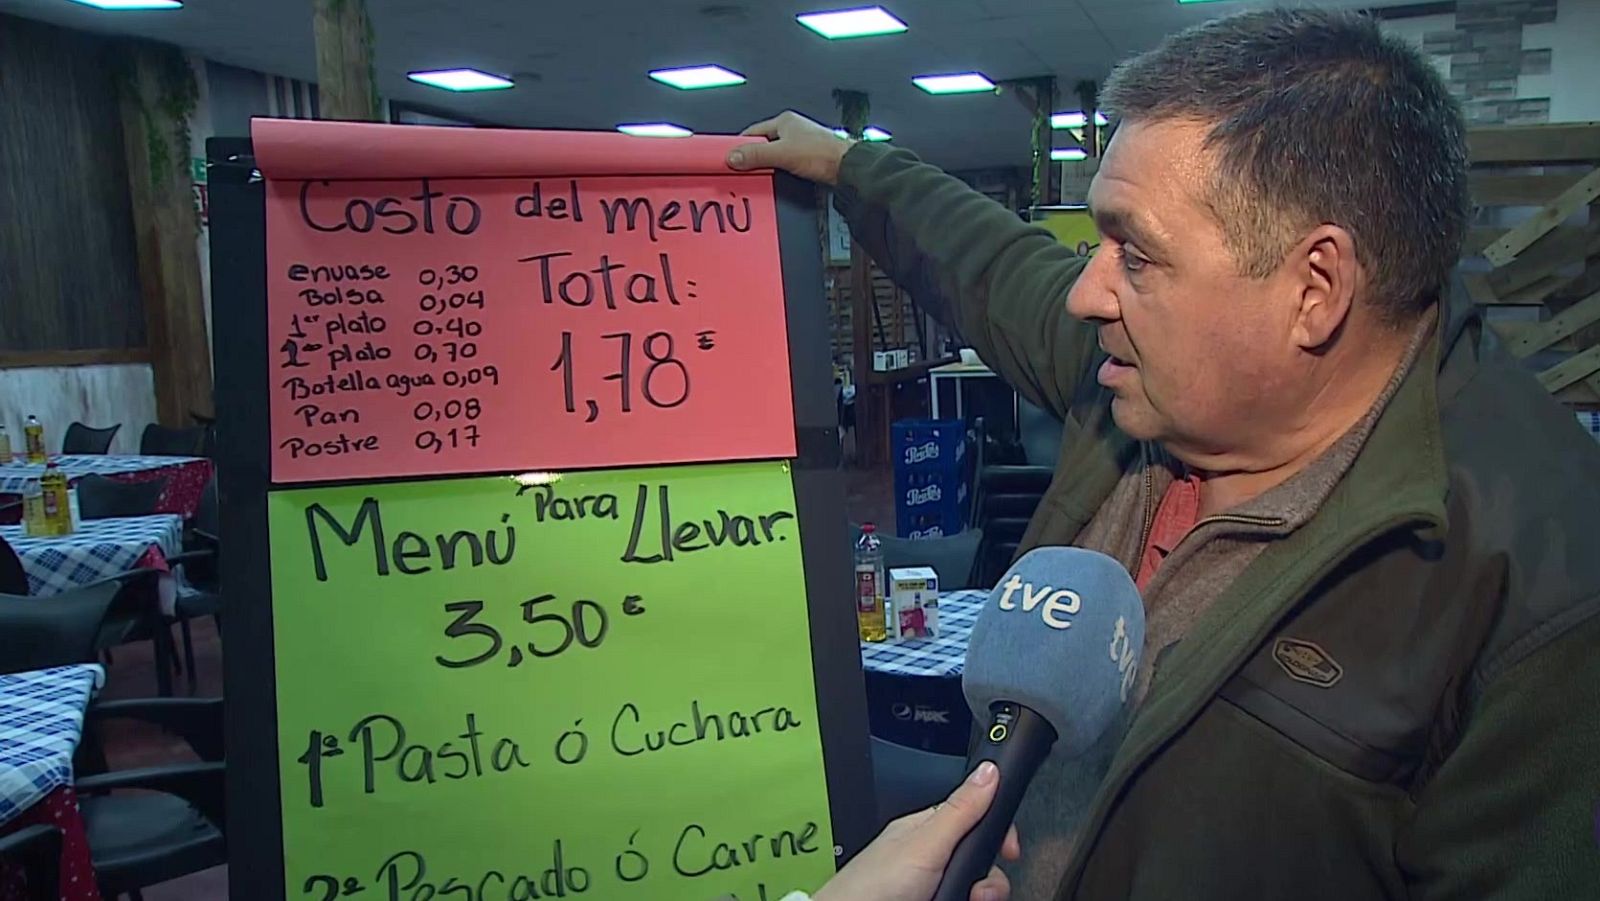 Costo del menù
envase 0,30
Bolsa 0,04
1er plato 0,40
2do plato 0,70
Botella agua 0,09
Pan 0,08
Postre 0,17
Total:
1,78€
Menú Para Llevar.
3,50€
1º Pasta ó Cuchara
2º Pescado ó Carne
tve
tve
MAX